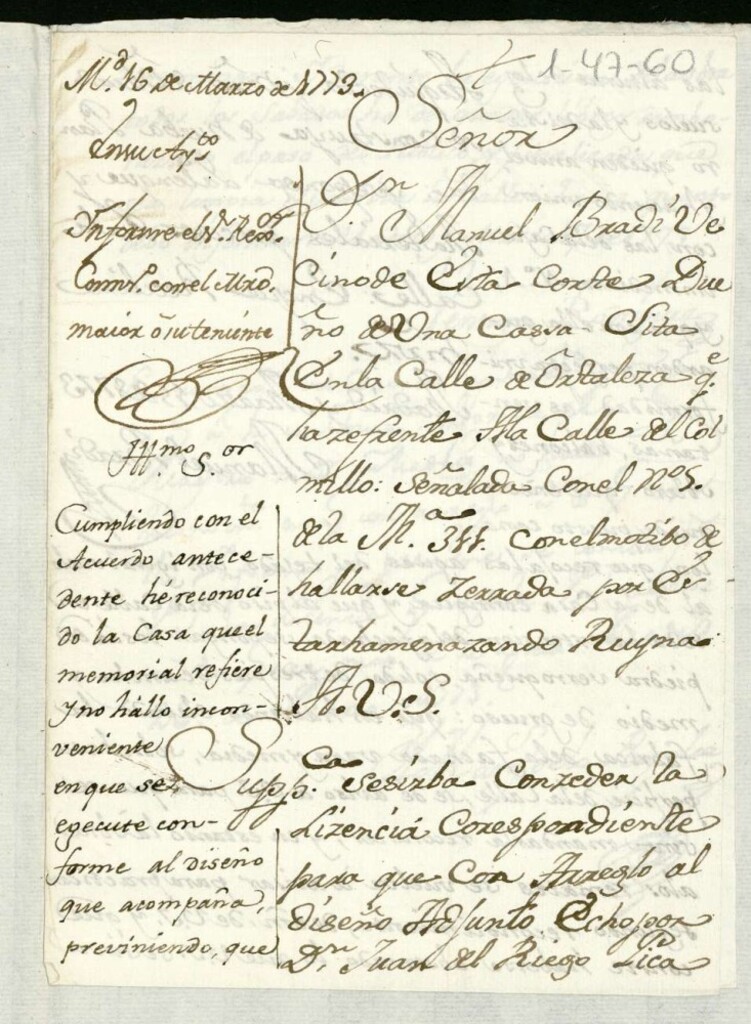 1-47-60
M.d 16 de Marzo de 1773.
En su Ay.to
Informe el S.r Rex.or
Comis.o con el Mro.
maior ò su teniente
Ill.mo S.or
Cumpliendo con el
Acuerdo antece-
dente hé reconoci-
do la Casa que el
memorial refiere
y no hállo incon-
veniente
en que se
egecute con-
forme al diseño
que acompaña,
previniendo, que
Señor
D.n Manuel Bradi Ve
cino de Esta Corte Due
ño de Una Cassa Sita
En la Calle de Ortaleza q.e
haze frente Ala Calle del Col
millo: señalada Con el N.o 5.
de la M.a 311. con el motibo de
hallarse zerrada por Es
tar hamenazando Ruyna
A. V. S.
Supp.ca se sirba Conzeder la
Lizencia Corespondiente
para que Con Arreglo al
diseño Adjunto Echo por
D.n Juan del Riego Pica